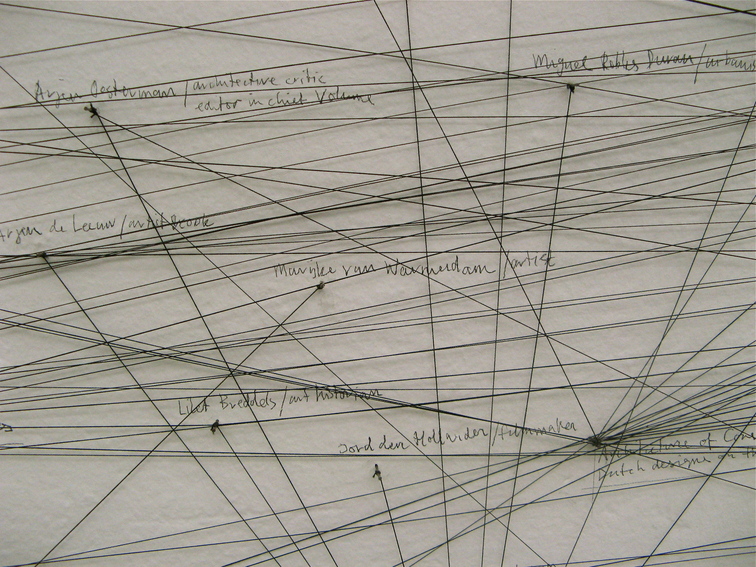 Arjen Oosterman / architecture critic
editor in chief Volume
Miguel Robles Duran / urbanis
Arjen de Leeuw / artist
Marijke van Warmerdam / artist
Lilet Breddels / art historian
Jord den Hollander / filmmaker
Architecture of Con
Dutch designe on